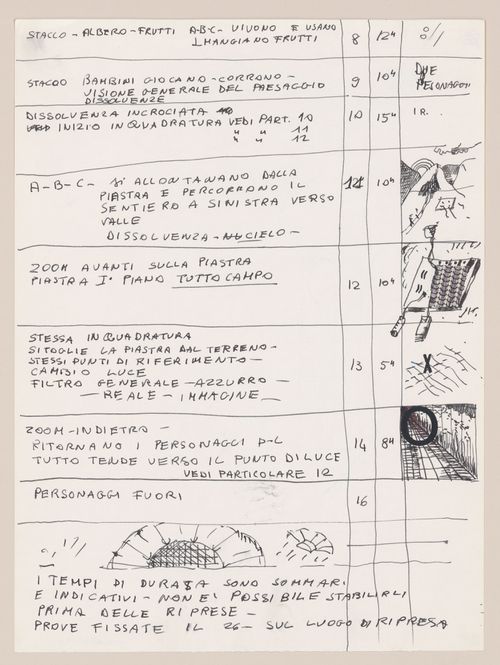 STACCO - ALBERO - FRUTTI A-B-C- VIVONO E USANO
MANGIANO FRUTTI 8 12"
STACCO BAMBINI GIOCANO - CORRONO - 9 10" DUE
VISIONE GENERALE DEL PAESAGGIO
DISSOLVENZE
DISSOLVENZA INCROCIATA 10 15" I R.
INIZIO INQUADRATURA VEDI PART. 10
" " 11
" " 12
A-B-C- SI ALLONTANANO DALLA 10"
PIASTRA E PERCORRONO IL
SENTIERO A SINISTRA VERSO
VALLE
DISSOLVENZA - CIELO -
ZOOM AVANTI SULLA PIASTRA
PIASTRA I° PIANO TUTTO CAMPO 12 10"
STESSA INQUADRATURA
SI TOGLIE LA PIASTRA DAL TERRENO -
STESSI PUNTI DI RIFERIMENTO - 13 5" X
CAMBIO LUCE
FILTRO GENERALE - AZZURRO -
- REALE - IMMAGINE -
ZOOM - INDIETRO -
RITORNANO I PERSONAGGI 14 8"
TUTTO TENDE VERSO IL PUNTO DI LUCE
VEDI PARTICOLARE 12
PERSONAGGI FUORI 16
I TEMPI DI DURATA SONO SOMMARI
E INDICATIVI - NON E' POSSIBILE STABILIRLI
PRIMA DELLE RIPRESE -
PROVE FISSATE IL 26 - SUL LUOGO DI RIPRESA